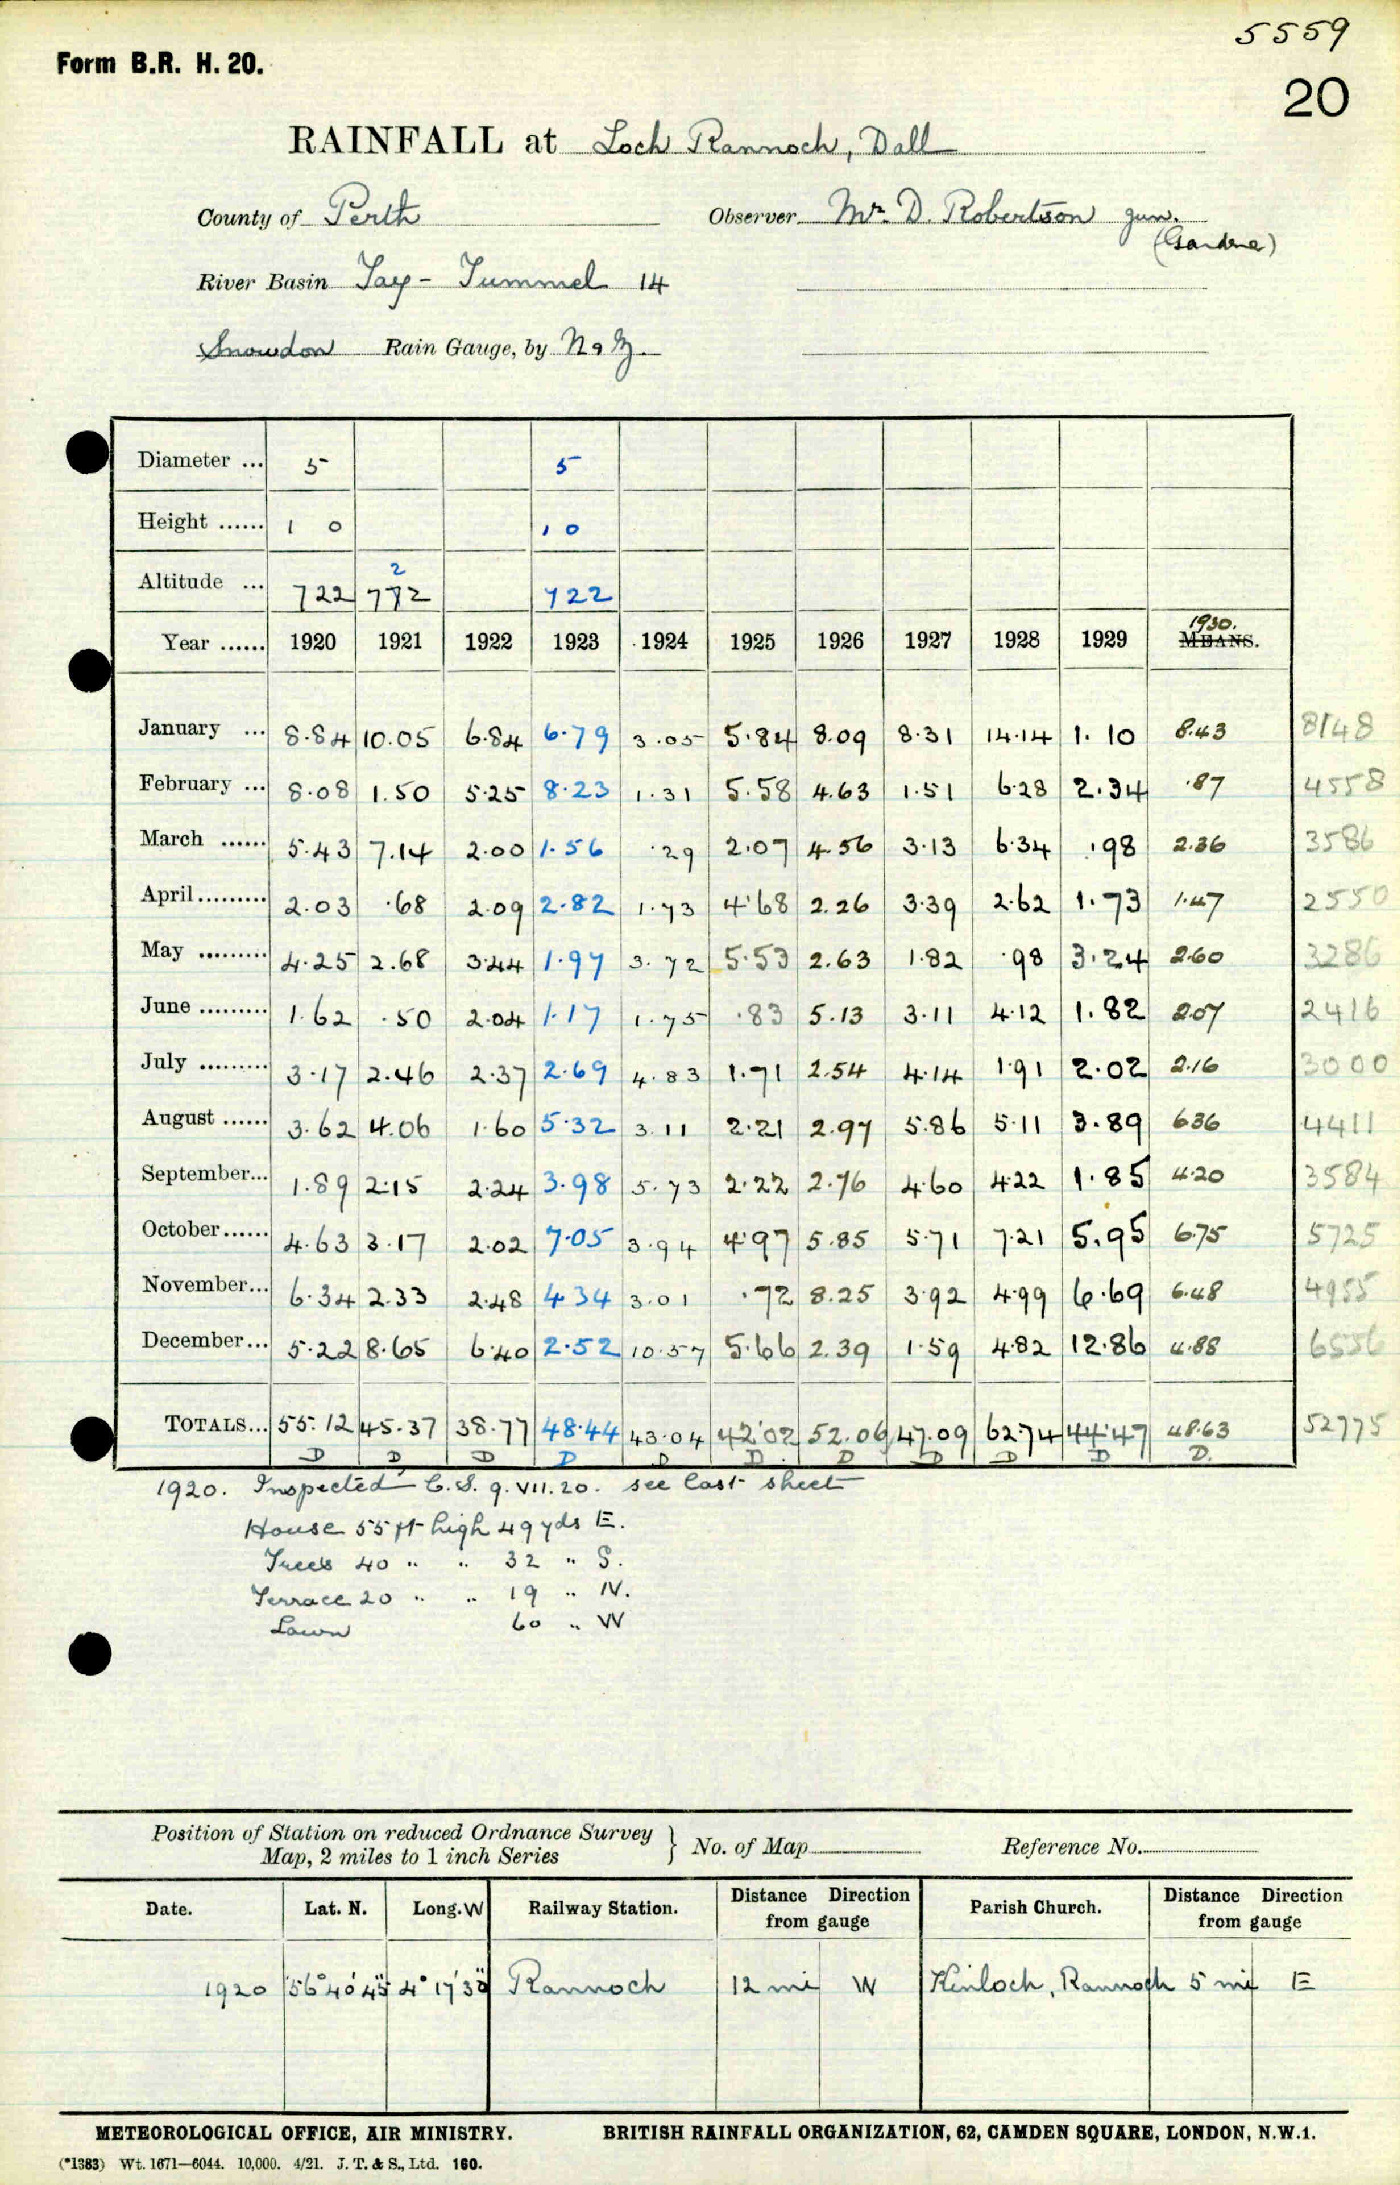 5559
Form B.R. H. 20.
20
RAINFALL at Loch Rannoch, Dall
County of Perth Observer Mr. D. Robertson jun.
(Gardener)
River Basin Tay - Tummel 14
Snowdon Rain Gauge, by N & Z.
Diameter ... 5 5
Height ...... 1 0 1 0
2
Altitude ... 722 772 722
1930.
Year ...... 1920 1921 1922 1923 1924 1925 1926 1927 1928 1929 MEANS.
January ... 8.84 10.05 6.84 6.79 3.05 5.84 8.09 8.31 14.14 1.10 8.43 8148
February ... 8.08 1.50 5.25 8.23 1.31 5.58 4.63 1.51 6.28 2.34 .87 4558
March ...... 5.43 7.14 2.00 1.56 .29 2.07 4.56 3.13 6.34 .98 2.36 3586
April ......... 2.03 .68 2.09 2.82 1.73 4.68 2.26 3.39 2.62 1.73 1.47 2550
May ......... 4.25 2.68 3.44 1.97 3.72 5.53 2.63 1.82 .98 3.24 2.60 3286
June ......... 1.62 .50 2.04 1.17 1.75 .83 5.13 3.11 4.12 1.82 2.07 2416
July ......... 3.17 2.46 2.37 2.69 4.83 1.71 2.54 4.14 1.91 2.02 2.16 3000
August ...... 3.62 4.06 1.60 5.32 3.11 2.21 2.97 5.86 5.11 3.89 6.36 4411
September... 1.89 2.15 2.24 3.98 5.73 2.22 2.76 4.60 4.22 1.85 4.20 3584
October...... 4.63 3.17 2.02 7.05 3.94 4.97 5.85 5.71 7.21 5.95 6.75 5725
November... 6.34 2.33 2.48 4.34 3.01 .72 8.25 3.92 4.99 6.69 6.48 4955
December... 5.22 8.65 6.40 2.52 10.57 5.66 2.39 1.59 4.82 12.86 4.88 6556
TOTALS... 55.12 45.37 38.77 48.44 43.04 42.02 52.06 47.09 62.74 44.47 48.63 52775
D D D D D D D D D D D.
1920. Inspected C.S. 9.VII.20. see last sheet
House 55 ft high 49 yds E.
Trees 40 " " 32 " S.
Terrace 20 " " 19 " N.
Lawn 60 " W
Position of Station on reduced Ordnance Survey
Map, 2 miles to 1 inch Series } No. of Map Reference No.
Date. Lat. N. Long. W Railway Station. Distance Direction from gauge Parish Church. Distance Direction from gauge
1920 56° 40' 45" 4° 17' 30" Rannoch 12 mi W Kinloch, Rannoch 5 mi E
METEOROLOGICAL OFFICE, AIR MINISTRY. BRITISH RAINFALL ORGANIZATION, 62, CAMDEN SQUARE, LONDON, N.W.1.
(*1383) Wt. 1671—6044. 10,000. 4/21. J. T. & S., Ltd. 160.